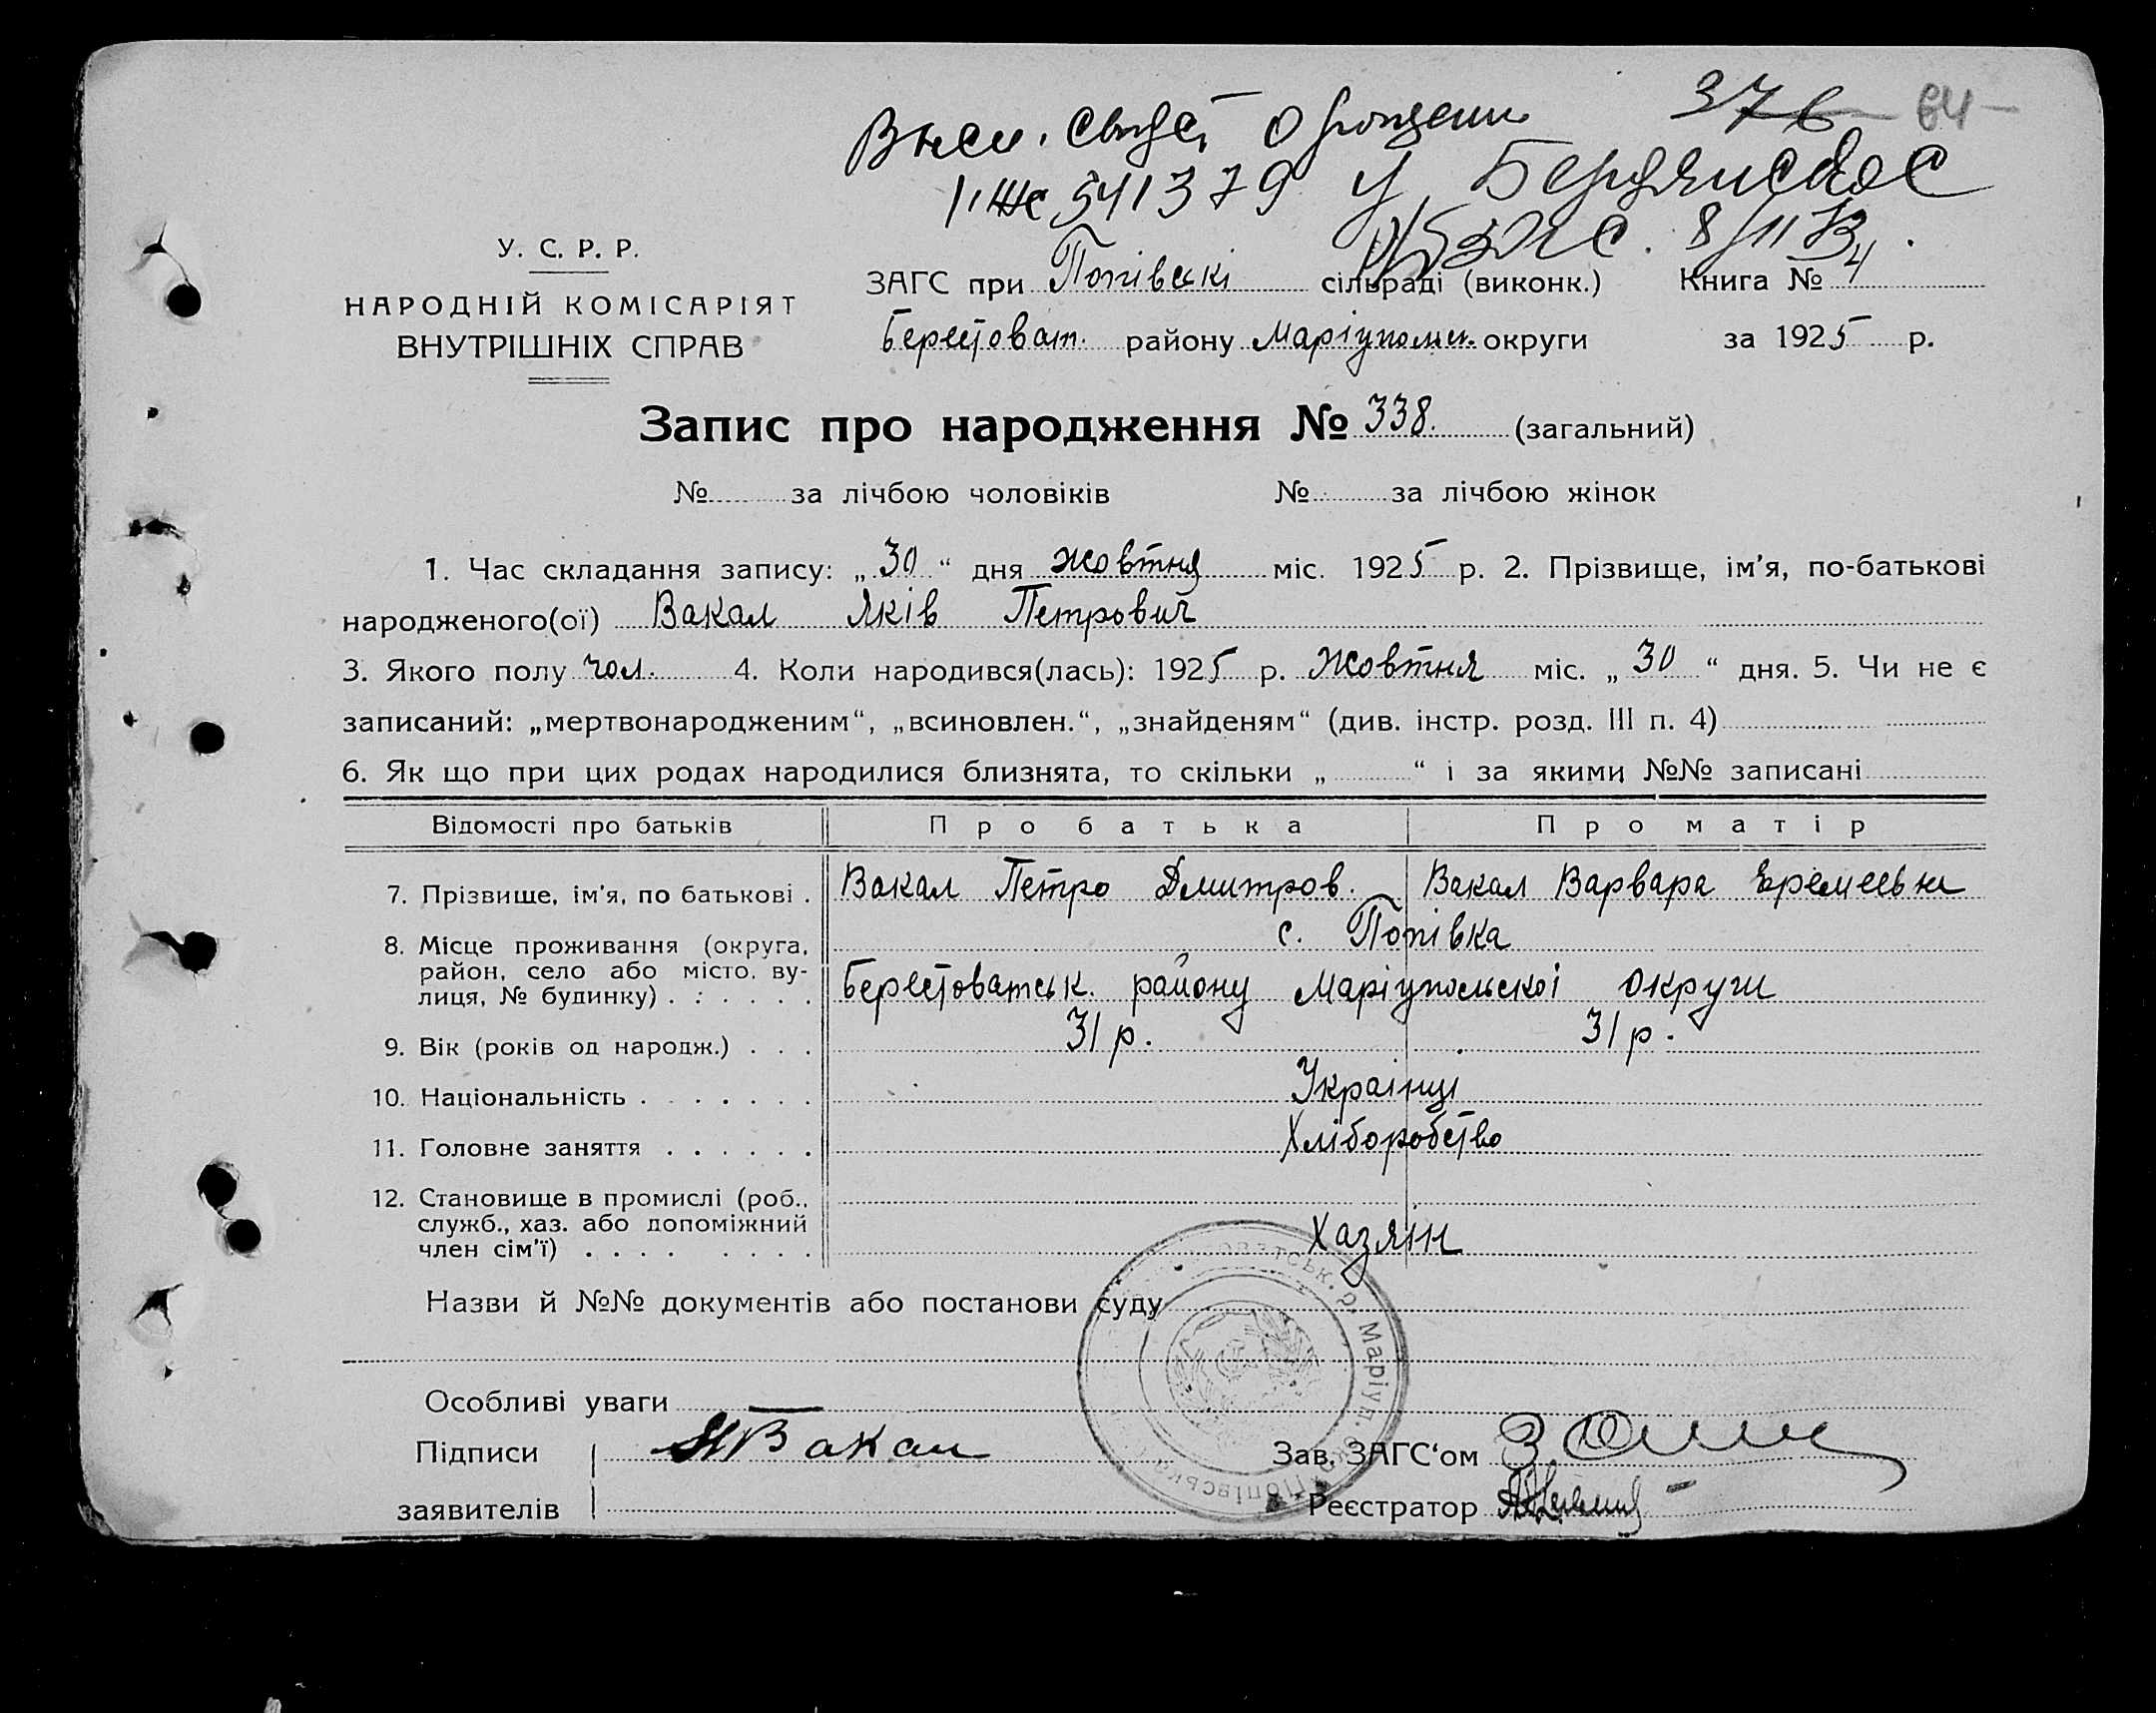 376 64
о рождении
541379 У Бердянское
8/11
У. С. Р. Р.
НАРОДНІЙ КОМІСАРІЯТ
ВНУТРІШНІХ СПРАВ
ЗАГС при Попівскі сільраді (виконк.) Книга № 4
Берестоват. району Маріупольск. округи за 1925 р.
Запис про народження № 338. (загальний)
№ за лічбою чоловіків № за лічбою жінок
1. Час складання запису: „30“ дня жовтня міс. 1925 р. 2. Прізвище, ім'я, по-батькові
народженого(ої) Вакал Яків Петрович
3. Якого полу чол. 4. Коли народився(лась): 1925 р. Жовтня міс. „30“ дня. 5. Чи не є
записаний: „мертвонародженим“, „всиновлен.“, „знайденям“ (див. інстр. розд. III п. 4)
6. Як що при цих родах народилися близнята, то скільки „ “ і за якими №№ записані
Відомості про батьків Про батька Про матір
7. Прізвище, ім'я, по батькові . Вакал Петро Дмитров. Вакал Варвара Еремеевна
8. Місце проживання (округа, с. Попівка
район, село або місто, ву-
лиця, № будинку) . . . . . . Берестоватськ. району Маріупольскоі округи
9. Вік (років од народж.) . . . 31 р. 31 р.
10. Національність . . . . . . . Українці
11. Головне заняття . . . . . . Хліборобство
12. Становище в промислі (роб.,
служб., хаз. або допоміжний
член сім'ї) . . . . . . . . Хазяїн
Назви й №№ документів або постанови суду
Особливі уваги —
Підписи Вакал Зав. ЗАГС‘ом
заявителів Реєстратор
оватськ. р. Маріуп. окр. Попівська